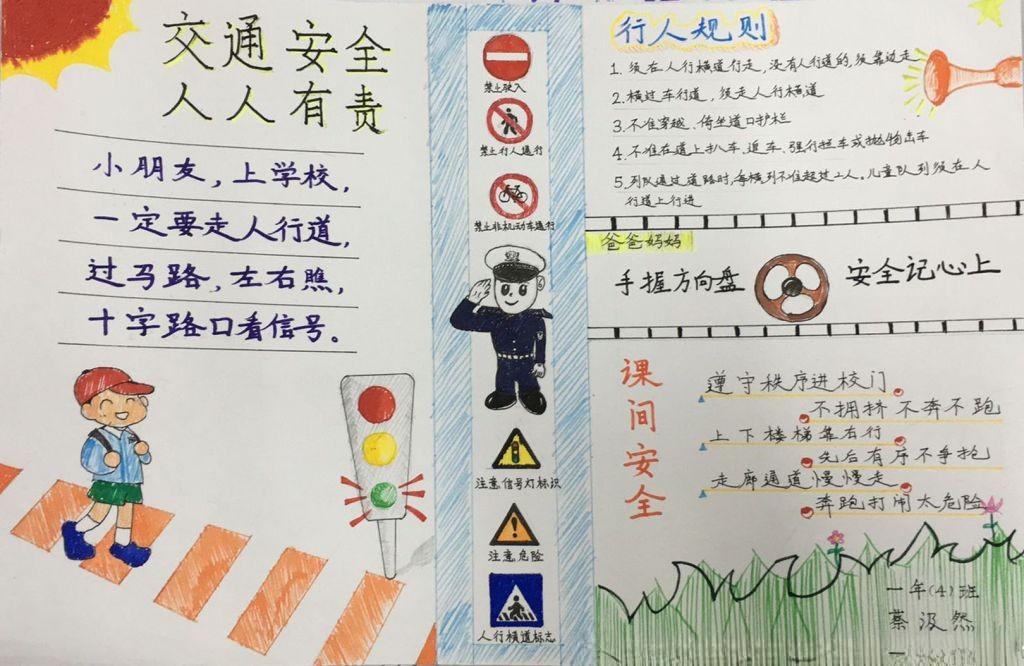 交通安全
人人有责
小朋友，上学校，
一定要走人行道，
过马路，左右瞧，
十字路口看信号。
禁止驶入
禁止行人通行
禁止非机动车通行
注意信号灯标识
注意危险
人行横道标志
行人规则
1. 须在人行横道行走，没有人行道的，须靠边走
2. 横过车行道，须走人行横道
3. 不准穿越、倚坐道口护栏
4. 不准在道上扒车、追车、强行拦车或抛物击车
5. 列队通过道路时，每横列不准超过二人。儿童队列须在人
行道上行进
爸爸妈妈
手握方向盘
安全记心上
课间安全
遵守秩序进校门
不拥挤 不奔不跑
上下楼梯靠右行
先后有序不争抢
走廊通道慢慢走
奔跑打闹太危险
一年(4)班
蔡汲然